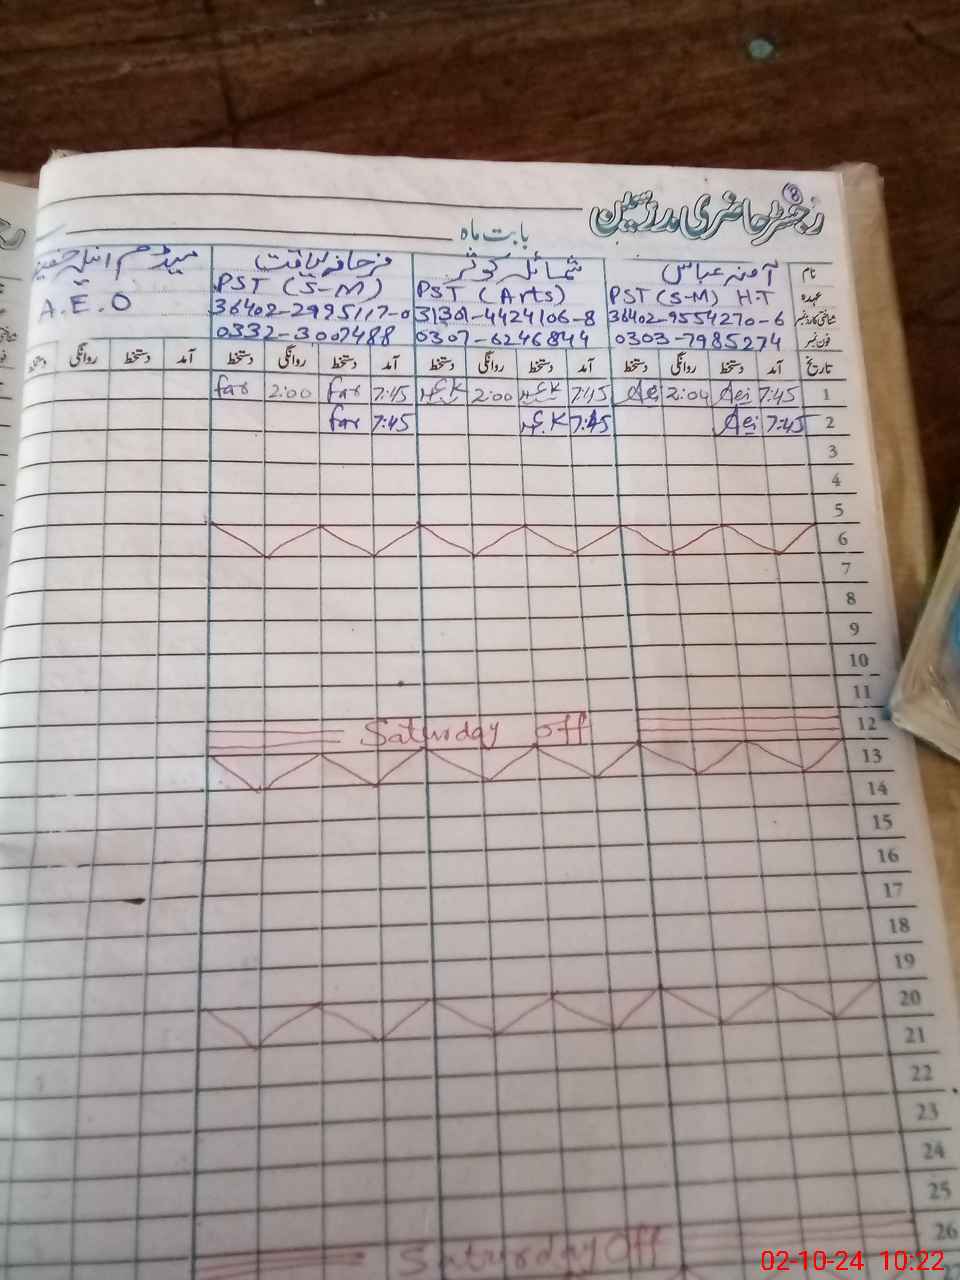 رجسٹر حاضری مدرسین
8
بابت ماہ
نام آمنہ عباس شمائلہ کوثر فرحانہ لیاقت میڈم
عہدہ PST (S-M) H.T PST (Arts) PST (S-M) A.E.O
شناختی کارڈ نمبر 36402-9554270-6 31301-4424106-8 36402-2995117-0
فون نمبر 0303-7985274 0307-6246844 0332-3007488
تاریخ آمد دستخط روانگی دستخط آمد دستخط روانگی دستخط آمد دستخط روانگی دستخط آمد دستخط روانگی دستخط
1 7:45 2:04 7:45 2:00 7:45 far 2:00 far
2 7:45 7:45 7:45 far
3
4
5
6
7
8
9
10
11
12 Saturday off
13
14
15
16
17
18
19
20
21
22
23
24
25
26 Saturday Off
02-10-24 10:22